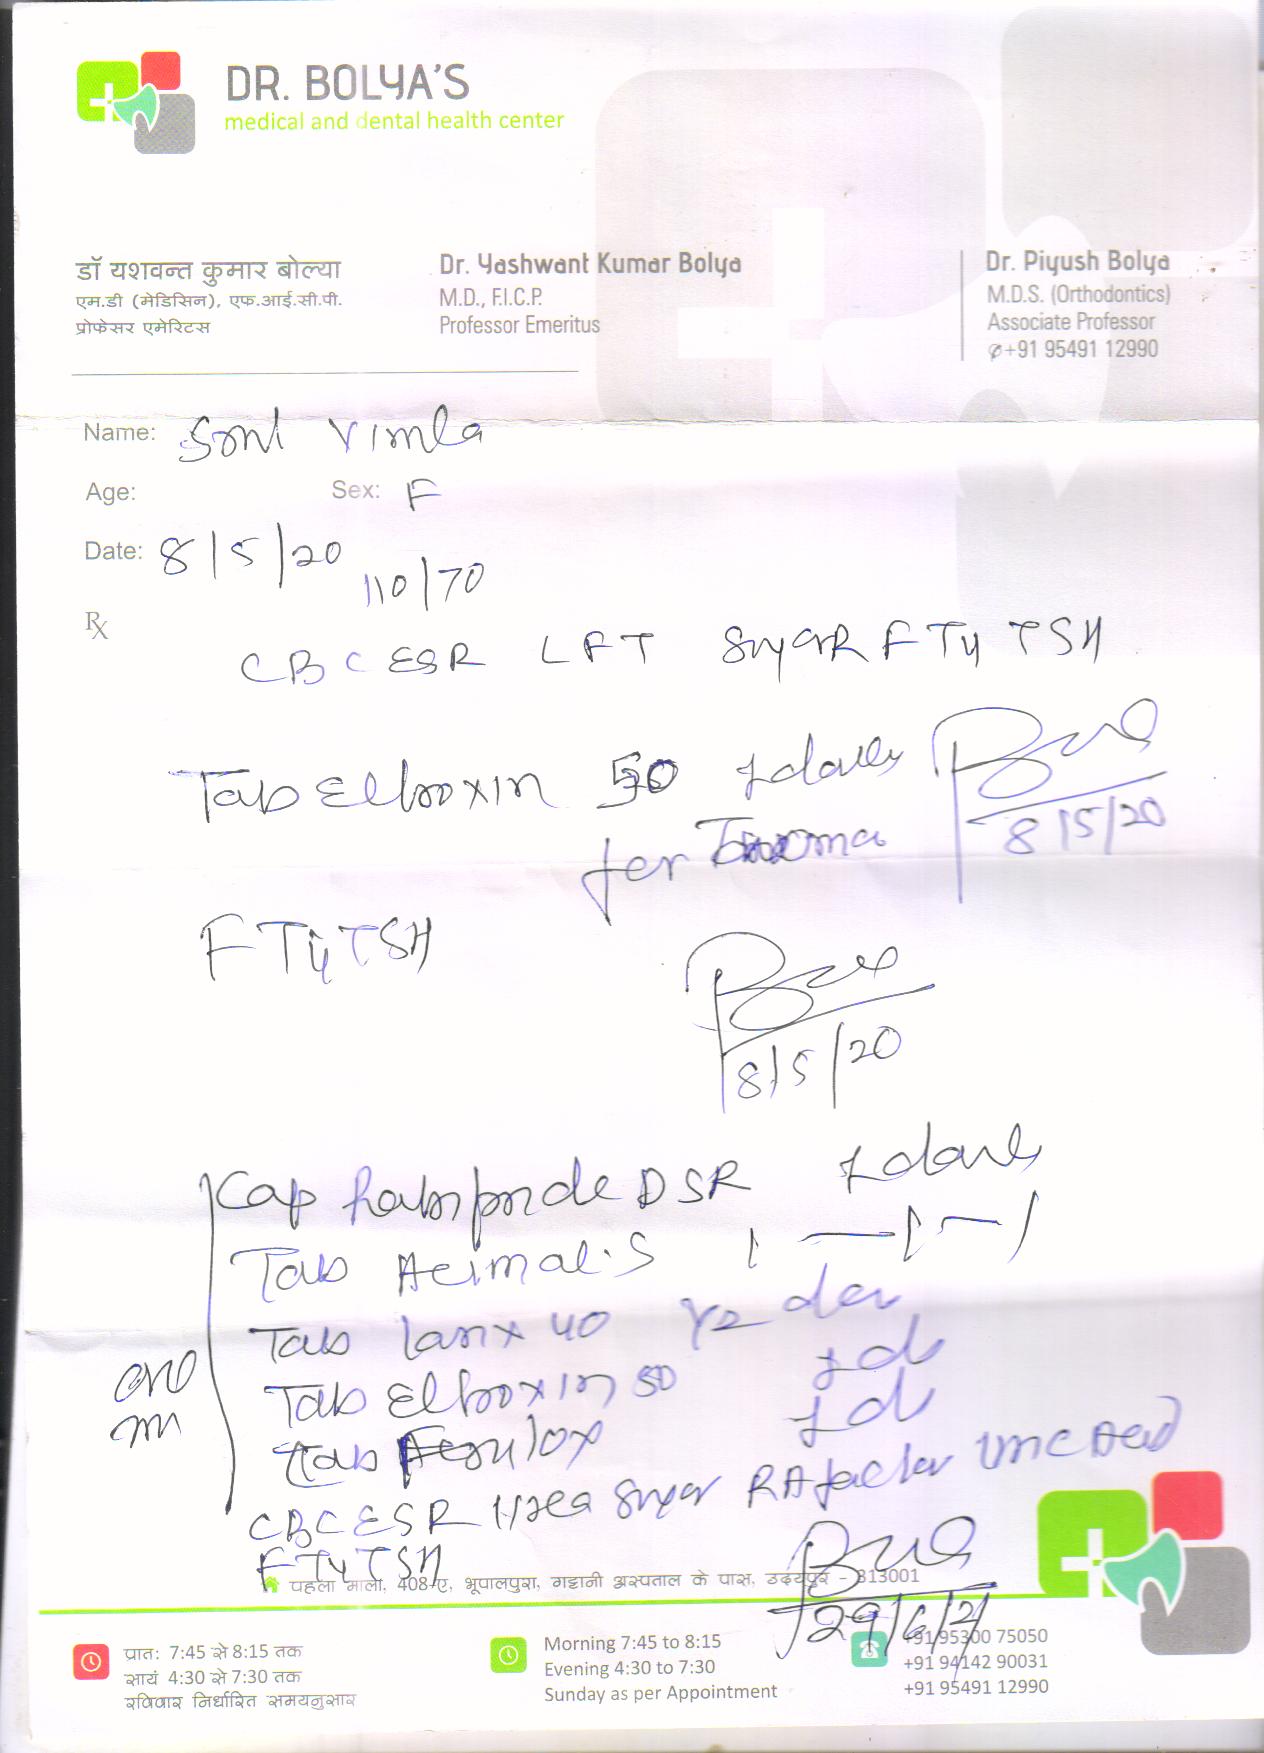 DR. BOLYA'S
medical and dental health center
डॉ यशवन्त कुमार बोल्या
एम.डी (मेडिसिन), एफ.आई.सी.पी.
प्रोफेसर एमेरिटस
Dr. Yashwant Kumar Bolya
M.D., F.I.C.P.
Professor Emeritus
Dr. Piyush Bolya
M.D.S. (Orthodontics)
Associate Professor
✆+91 95491 12990
Name: Smt Vimla
Age: Sex: F
Date: 8/5/20
110/70
Rx
CBC ESR LFT Sugar FT4 TSH
Tab Eltroxin 50 1 daily
for
8/5/20
FT4 TSH
8/5/20
Cap DSR 1 daily
Tab
Tab 40 1/2
Tab Eltroxin 50 1 d
Tab 1 d
CBC ESR Urea Sugar RA factor
FT4 TSH
पहला माला, 408-ए, भूपालपुरा, गट्टानी अस्पताल के पास, उदयपुर - 313001
29/6/21
प्रात: 7:45 से 8:15 तक
सायं 4:30 से 7:30 तक
रविवार निर्धारित समयनुसार
Morning 7:45 to 8:15
Evening 4:30 to 7:30
Sunday as per Appointment
+91 95300 75050
+91 94142 90031
+91 95491 12990